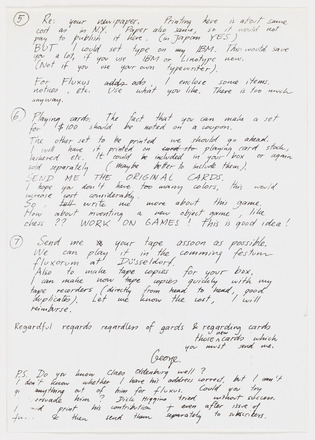 5 Re: your newspaper. Printing here is about same
cost as in N.Y. Paper also same, so it would not
pay to publish it here. (in Japan YES)
BUT I could set type on my IBM. This would save
you a lot, if you use IBM or Linotype now.
(Not if you use your own typewriter).
For Fluxus adds, I enclose some items,
notices, etc. Use what you like. There is too much
anyway.
6 Playing cards. The fact that you can make a set
for $100 should be noted on a coupon.
The other set to be printed we should go ahead.
I will have it printed on playing card stock,
lacquered etc. It could be included in your box or again
sold separately. (maybe better to include them).
SEND ME THE ORIGINAL CARDS.
I hope you don't have too many colors, this would
increase cost considerably.
So, write me more about this game.
How about inventing a new object game, like
chess ?? WORK ON GAMES! This is good idea!
7 Send me your tape assoon as possible.
We can play it in the comming festum
fluxorum at Düsseldorf.
Also to make tape copies for your box.
I can make now tape copies quickly with my
tape recorders (directly from head to head, good
duplicates). Let me know the cost. I will
reimburse.
Regardful regards regardless of gards & regarding cards
those new cards which
you must send me.
George
P.S. Do you know Claes Oldenburg well?
I don't know whether I have his address correct, but I can't
get anything out of him for fluxus. Could you try
persuade him? Dick Higgins tried without success.
I print his contribution even after issue of
& then send them separately to subscribers.